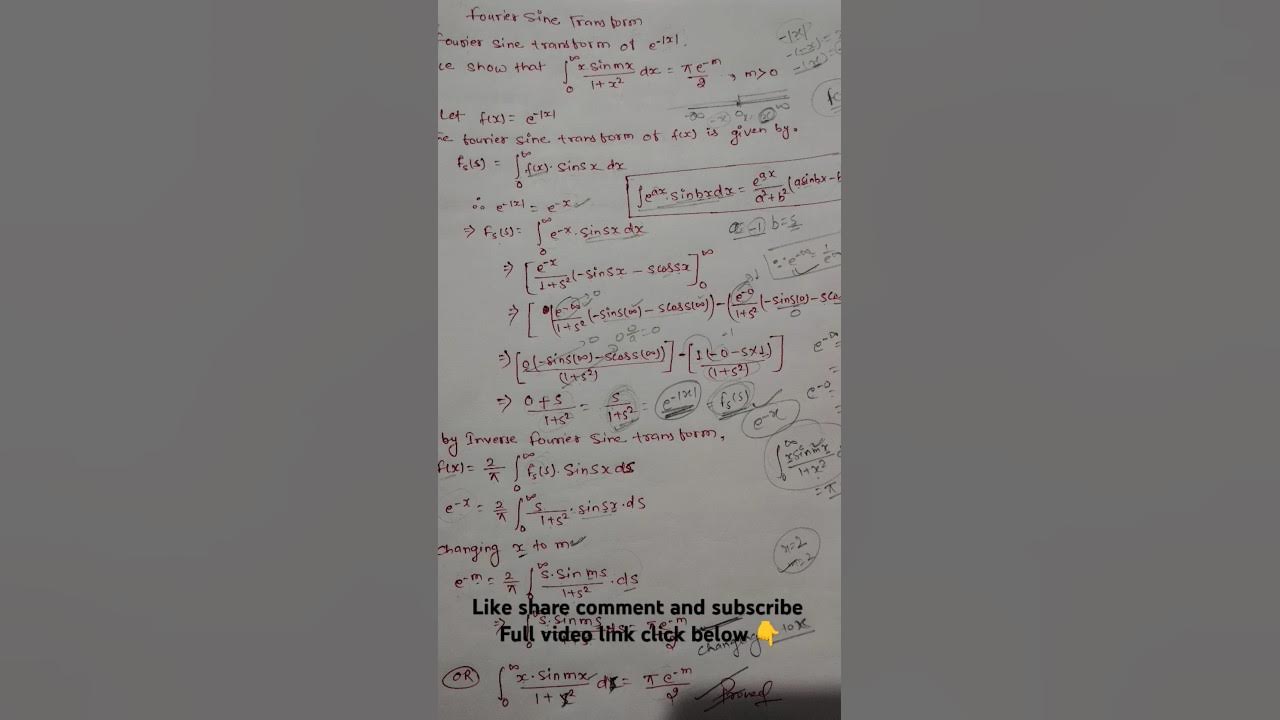 Fourier Sine Transform
Fourier sine transform of e^-|x|.
ce show that ∫₀^∞ x sinmx / 1+x² dx = πe^-m / 2 , m>0
Let f(x) = e^-|x|
e fourier sine transform of f(x) is given by.
Fs(s) = ∫₀^∞ f(x). sinsx dx
∫e^ax. sinbxdx = e^ax / a²+b² (asinbx-b
∴ e^-|x| = e^-x
a=-1 b=s
⇒ Fs(s) = ∫₀^∞ e^-x. sinsx dx
⇒ [e^-x / 1+s² (-sinsx - scossx]₀^∞
⇒ [e^-∞ / 1+s² (-sins(∞) - scoss(∞)) - (e^-0 / 1+s² (-sins(0) - scos
⇒ [0(-sins(∞) - scoss(∞)) / (1+s²)] - [1(-0-s×1) / (1+s²)]
⇒ 0+s / 1+s² = s / 1+s² = e^-|x| = fs(s)
e^-x
by Inverse fourier sine transform,
f(x) = 2/π ∫₀^∞ fs(s). sinsx ds
∫₀^∞ xsinmx / 1+x²
= π
e^-x = 2/π ∫₀^∞ s / 1+s² . sinsx. ds
changing x to m
x=2
e^-m = 2/π ∫₀^∞ s. sin ms / 1+s² . ds
Like share comment and subscribe
Full video link click below 👇
changing
OR ∫₀^∞ x. sinmx / 1+x² dx = πe^-m / 2 Proved